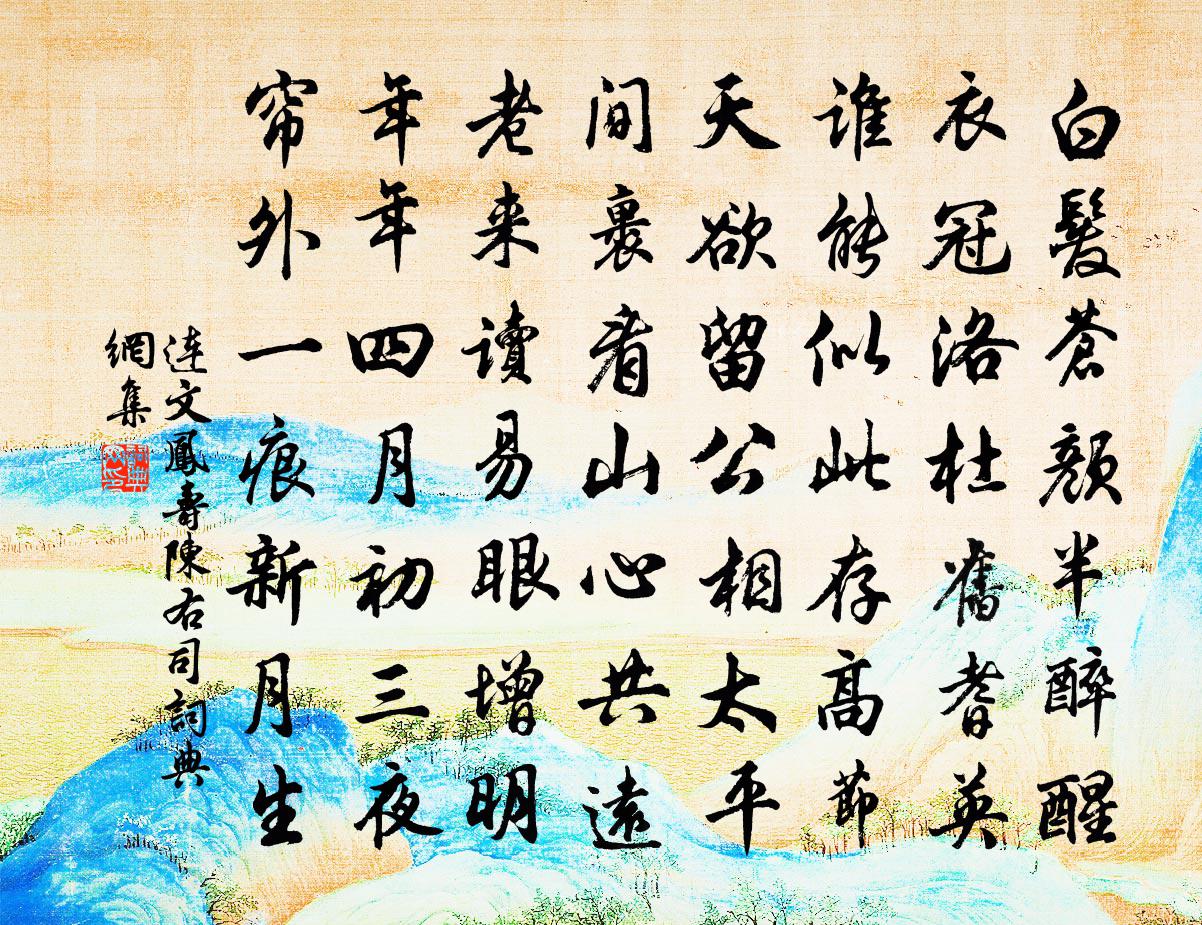 白髮蒼顏半醉醒
衣冠洛社舊耆英
谁能似此存高節
天欲留公相太平
间裏看山心共遠
老来讀易眼增明
年年四月初三夜
帘外一痕新月生
连文鳳壽陳右司詞典
網集